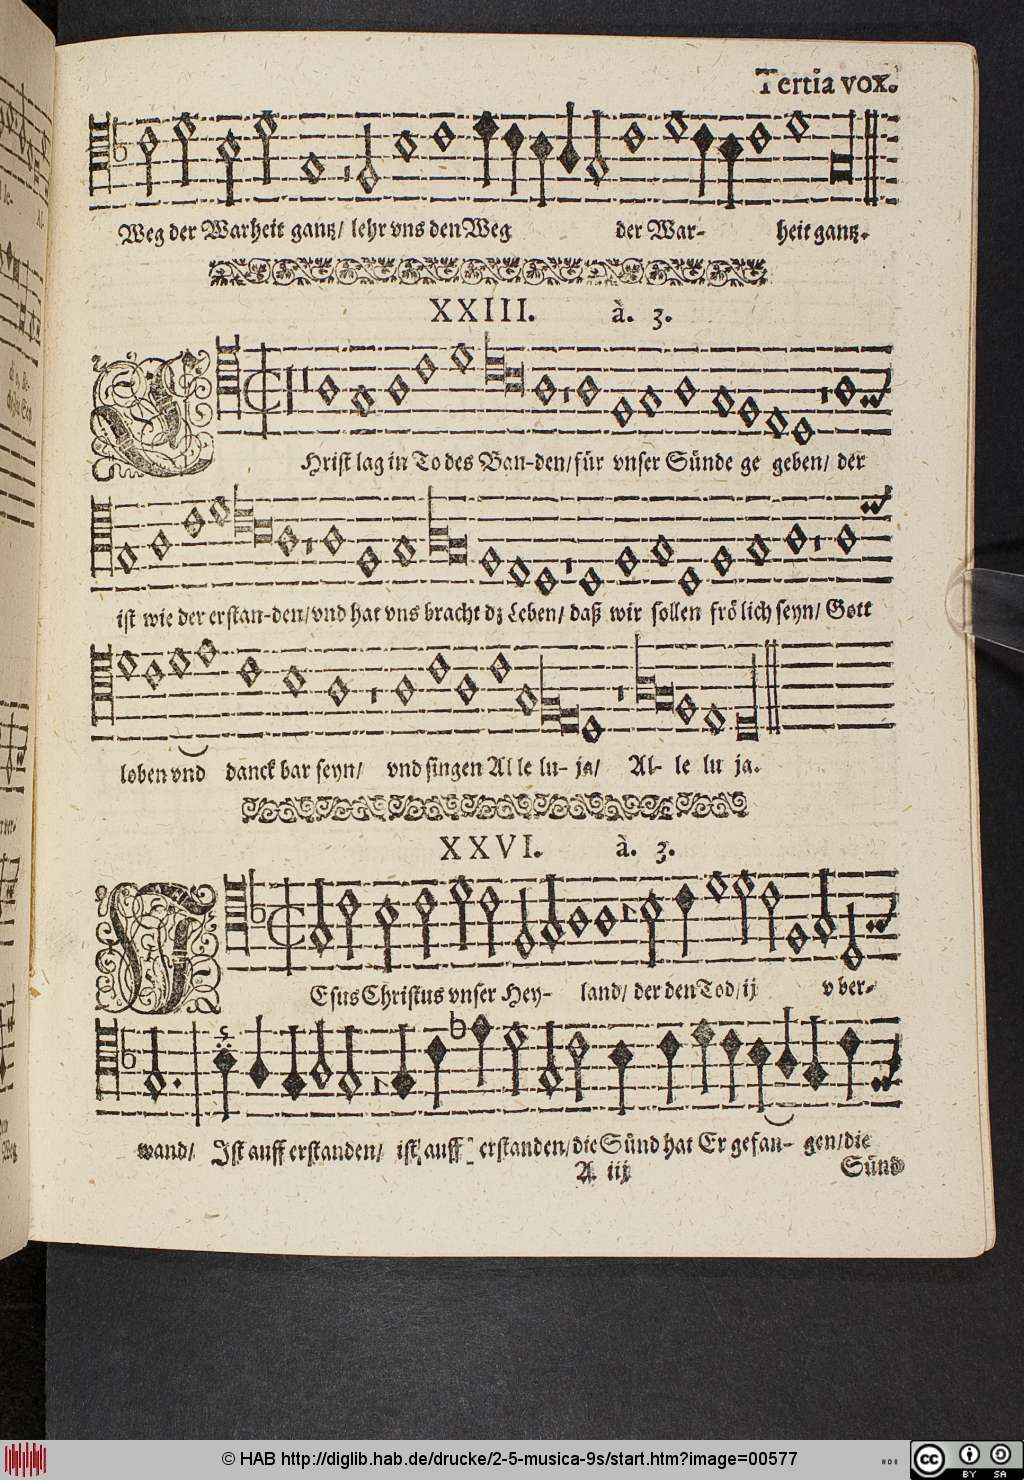 Tertia vox.
Weg der Warheit gantz/ lehr vns den Weg der War- heit gantz.
XXIII. à. 3.
CHrist lag in To des Ban-den/ für vnser Sünde ge geben/ der
ist wie der erstan-den/ vnd hat vns bracht dz Leben/ daß wir sollen frö lich seyn/ Gott
loben vnd danck bar seyn/ vnd singen Al le lu- ja/ Al- le lu ja.
XXVI. à. 3.
JEsus Christus vnser Hey- land/ der den Tod/ ij v ber-
wand/ Ist auff erstanden/ ist auff erstanden/ die Sünd hat Er gefan- gen/ die
A iij Sünd
© HAB http://diglib.hab.de/drucke/2-5-musica-9s/start.htm?image=00577
cc BY SA